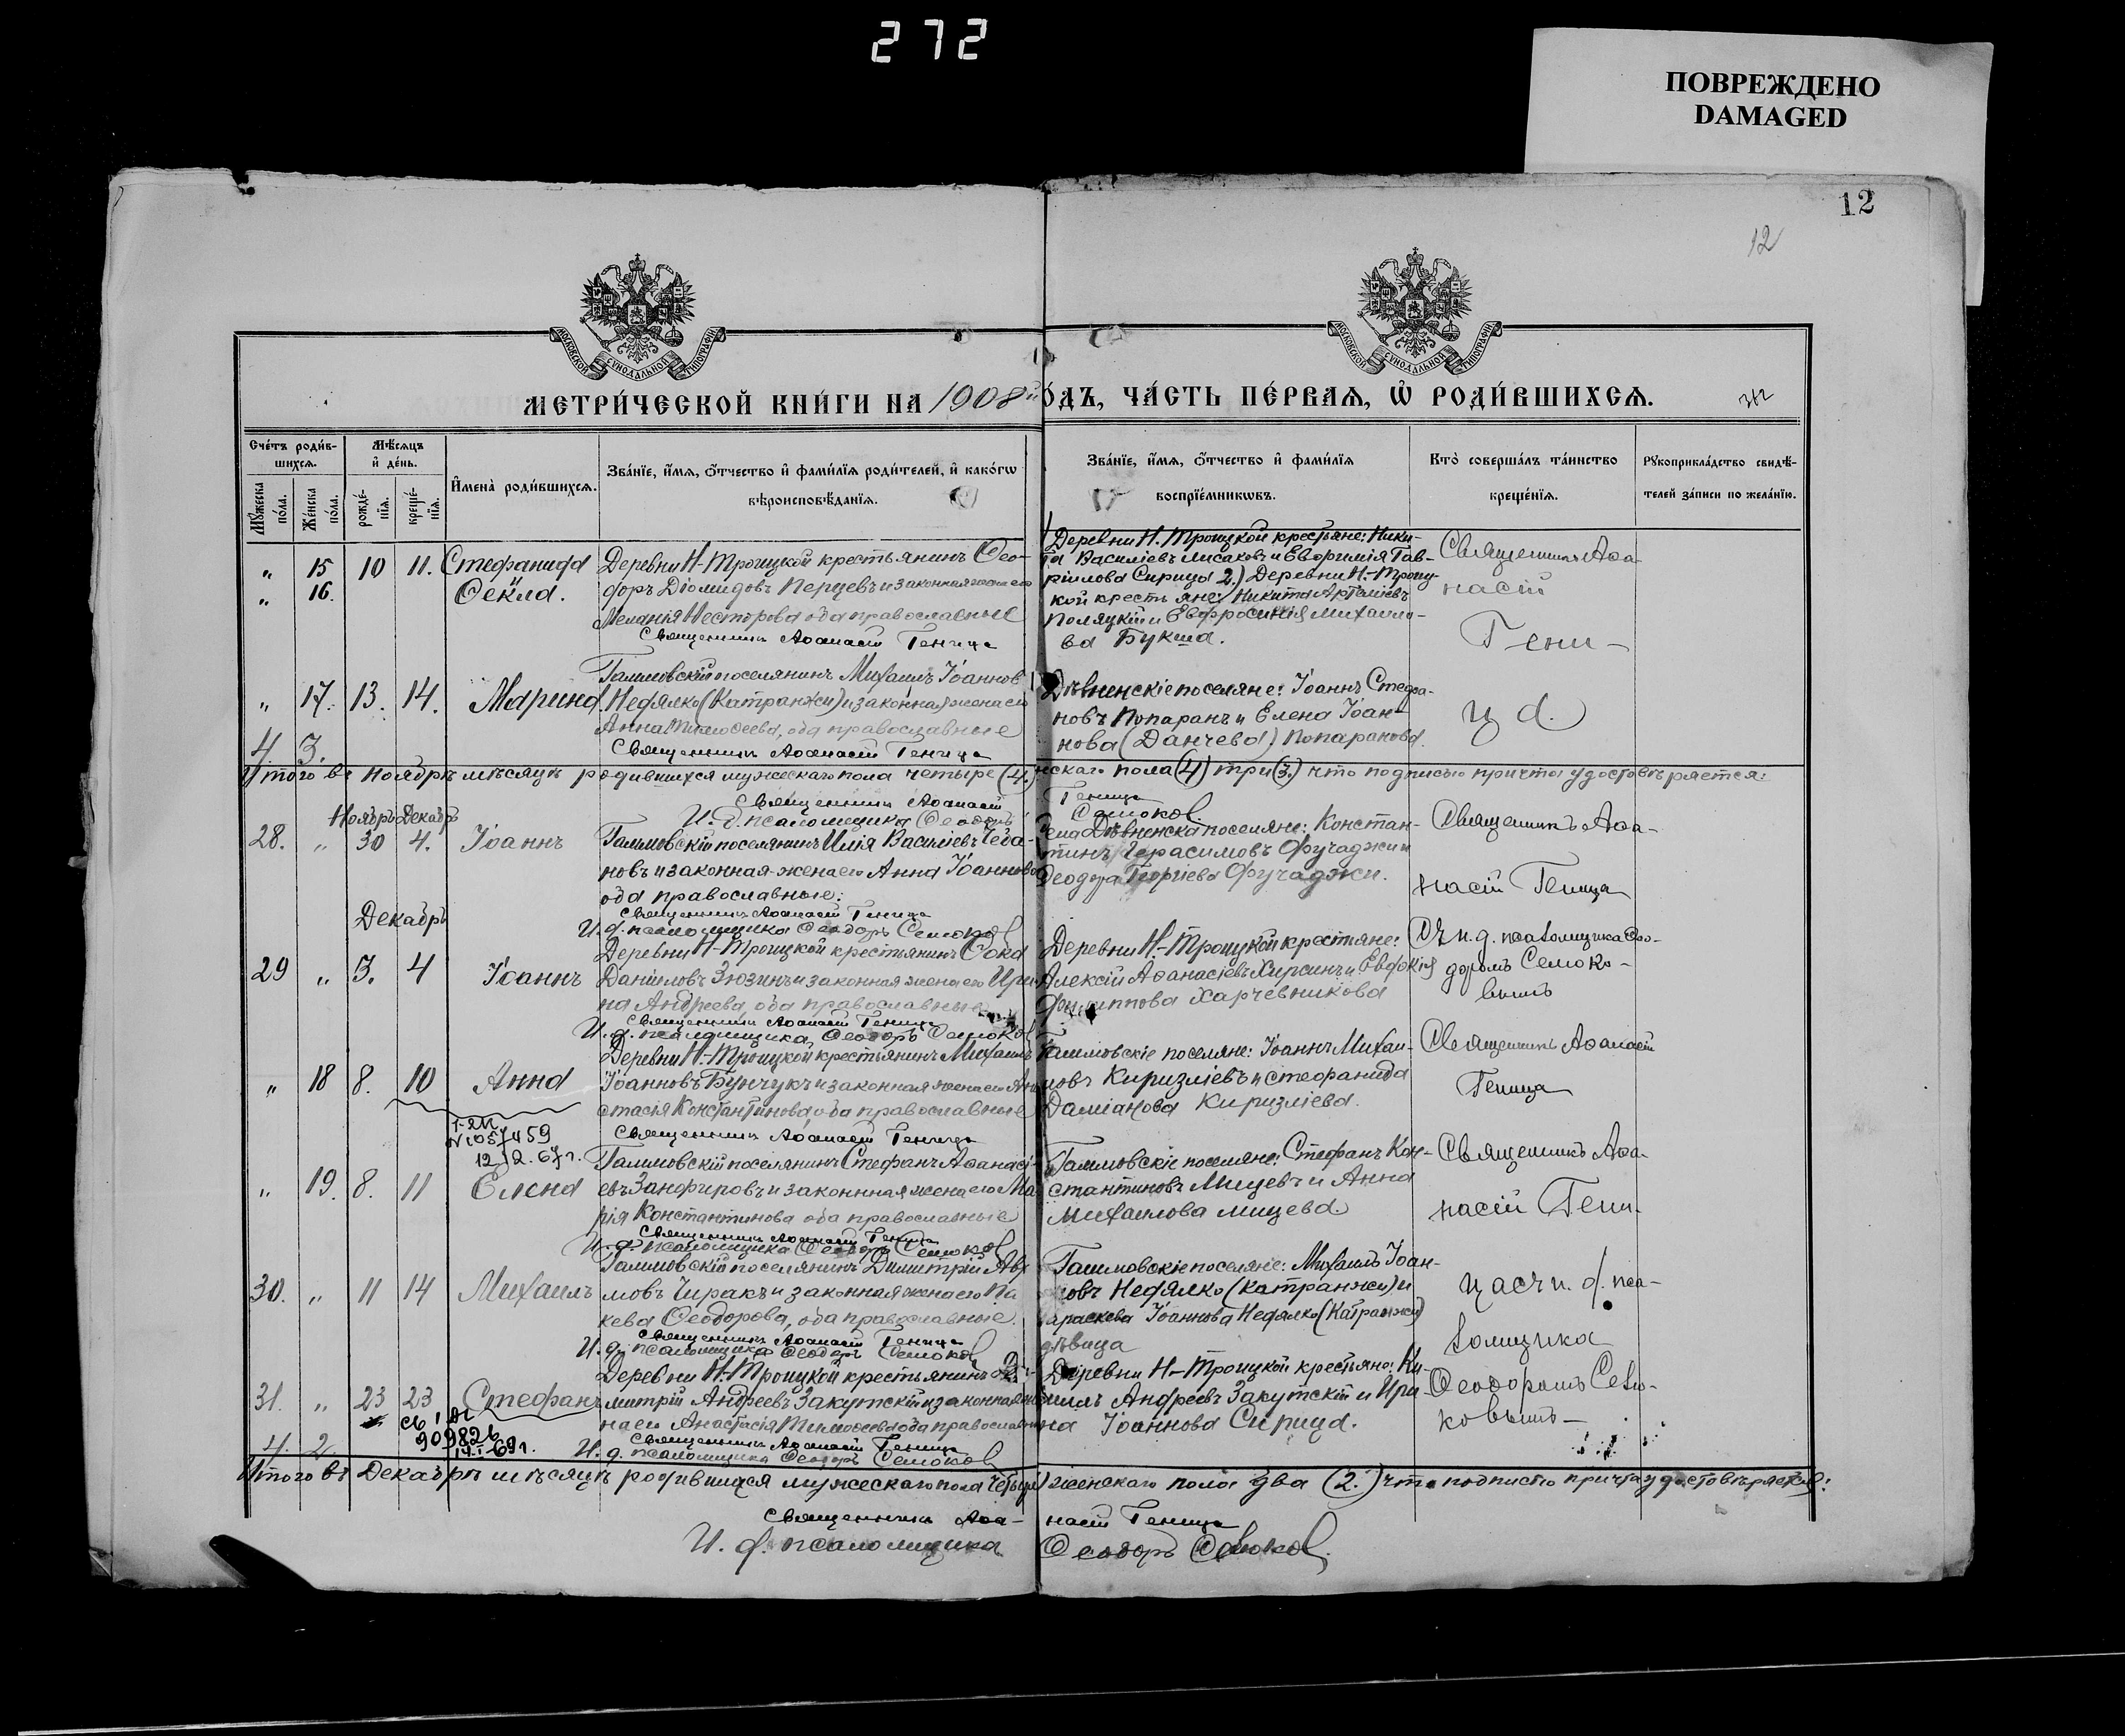 272
ПОВРЕЖДЕНО
DAMAGED
12
12
МОСКОВСКОЙ СѴНОДАЛЬНОЙ ТИПОГРАФІИ
МОСКОВСКОЙ СѴНОДАЛЬНОЙ ТИПОГРАФІИ
МЕТРИ́ЧЕСКОЙ КНИ́ГИ НА 1908й
О́ДЪ, ЧА́СТЬ ПЕ́РВАЯ, Ѡ҆ РОДИ́ВШИХСЯ.
Сче́тъ роди́в-
шихсѧ.
Мꙋ́жеска по́ла.
Же́нска по́ла.
Мѣ́сѧцъ
и҆ де́нь.
рожде́-
нїѧ.
креще́-
нїѧ.
И҆мена̀ роди́вшихсѧ.
Зва́нїе, и҆́мѧ, ѻ҆́тчество и҆ фами́лїѧ роди́телей, и҆ како́гѡ
вѣроисповѣ́данїѧ.
Зва́нїе, и҆́мѧ, ѻ҆́тчество и҆ фами́лїѧ
воспрїе́мникѡвъ.
Кто̀ соверша́лъ та́инство
креще́нїѧ.
Рꙋкоприкла́дство свидѣ́-
телей за́писи по жела́нїю.
„ 15 10 11. Стефанида
„ 16. Ѳекла.
Деревни Н-Троицкой крестьянинъ Ѳео-
доръ Діомидовъ Перцевъ и законная жена его
Меланія Несторова оба православные
Священникъ Аѳанасій Геница
Деревни Н. Троицкой крестьяне: Ники-
та Василіевъ Лисаковъ и Евфимія Гав-
ріилова Сирица 2.) Деревни Н-Троиц-
кой крестьяне: Никита Артаміевъ
Поляцкій и Евфросинія Михаило-
ва Букша.
Священникъ Аѳа-
насій
Гени-
ца.
„ 17. 13. 14. Марина
Галиловскій поселянинъ Михаилъ Іоаннов
Недялко (Катранжи) и законная жена его
Анна Тимоѳеева, оба православные
Священникъ Аѳанасій Геница
Дѣвненскіе поселяне: Іоаннъ Стефа-
новъ Попаранъ и Елена Іоан-
нова (Данчева) Попаранова.
4. 3.
Итого въ Ноябрѣ мѣсяцѣ родившихся мужескаго пола четыре (4.)
нскаго пола (4) три (3.) что подписью причта удостовѣряется:
Священникъ Аѳанасій
Геница
И. д. псаломщика Ѳеодоръ
Семоков.
Ноябрь Декабрь
28. „ 30 4. Іоаннъ
Галиловскій поселянинъ Илія Василіевъ Чеба-
новъ и законная жена его Анна Іоаннова
оба православные:
Священникъ Аѳанасій Геница
И. д. псаломщика Ѳеодоръ Семоков
поселяне: Констан-
тинъ Герасимовъ Фучаджи и
Ѳеодора Георгіева Фучаджи.
Священникъ Аѳа-
насій Геница
Декабрь
29 „ 3. 4 Іоаннъ
Деревни Н-Троицкой крестьянинъ Ѳока
Даниловъ Зюзинъ и законная жена его Ири-
на Андреева, оба православные
Священникъ Аѳанасій Геница
И. д. псаломщика, Ѳеодоръ Семоков
Деревни Н-Троицкой крестьяне:
Алексій Аѳанасіевъ Хирсинъ и Евдокія
Филиппова Харчевникова
Съ и. д. псаломщика Ѳео-
доромъ Семоко-
вымъ
„ 18 8. 10 Анна
Деревни Н-Троицкой крестьянинъ Михаилъ
Іоанновъ Бунчукъ и законная жена его Ана
стасія Константинова оба православные
Священникъ Аѳанасій Геница
поселяне: Іоаннъ Михаи-
ловъ Киризліевъ и Стефанида
Даміанова Киризліева.
Священникъ Аѳанасій
Геница
N 1057459
12.12.67г.
„ 19. 8. 11 Елена
Галиловскій поселянинъ Стефанъ Аѳанасі-
евъ Занфировъ и законная жена его Ма
рія Константинова оба православные
Священникъ Аѳанасій Геница
И. д. псаломщика Ѳеодоръ Семоков
Галиловскіе поселяне: Стефанъ Кон-
стантиновъ Мицевъ и Анна
Михаилова Мицева
Священникъ Аѳа-
насій Гени-
30. „ 11 14 Михаилъ
Галиловскій поселянинъ Димитрій Авр
мовъ Чиракъ и законная жена его Па
кева Ѳеодорова, оба православные.
Священникъ Аѳанасій Геница
И. д. псаломщика Ѳеодоръ Семоков
Галиловскіе поселяне: Михаилъ Іоан-
новъ Недялко (Катранжи) и
Параскева Іоаннова Недялко (Катранжи)
дѣвица
ца съ и. д. пса-
ломщика
31. „ 23 23 Стефанъ
Деревни Н-Троицкой крестьянинъ Ди-
митрій Андреевъ Закутскій и законная же
на его Анастасія Тимоѳеева оба православн
Священникъ Аѳанасій Геница
И. д. псаломщика Ѳеодоръ Семоков
Деревни Н-Троицкой крестьяне: Ки-
риллъ Андреевъ Закутскій и Ири-
на Іоаннова Сирица.
Ѳеодоромъ Семо-
ковымъ
909826
14.I-69г.
4. 2.
Итого въ Декабрѣ мѣсяцѣ родившихся мужескаго пола четыре
женскаго пола два (2.) что подписью причта удостовѣряется:
Священникъ Аѳа-
насій Геница
И. д. псаломщика
Ѳеодоръ Семоков.